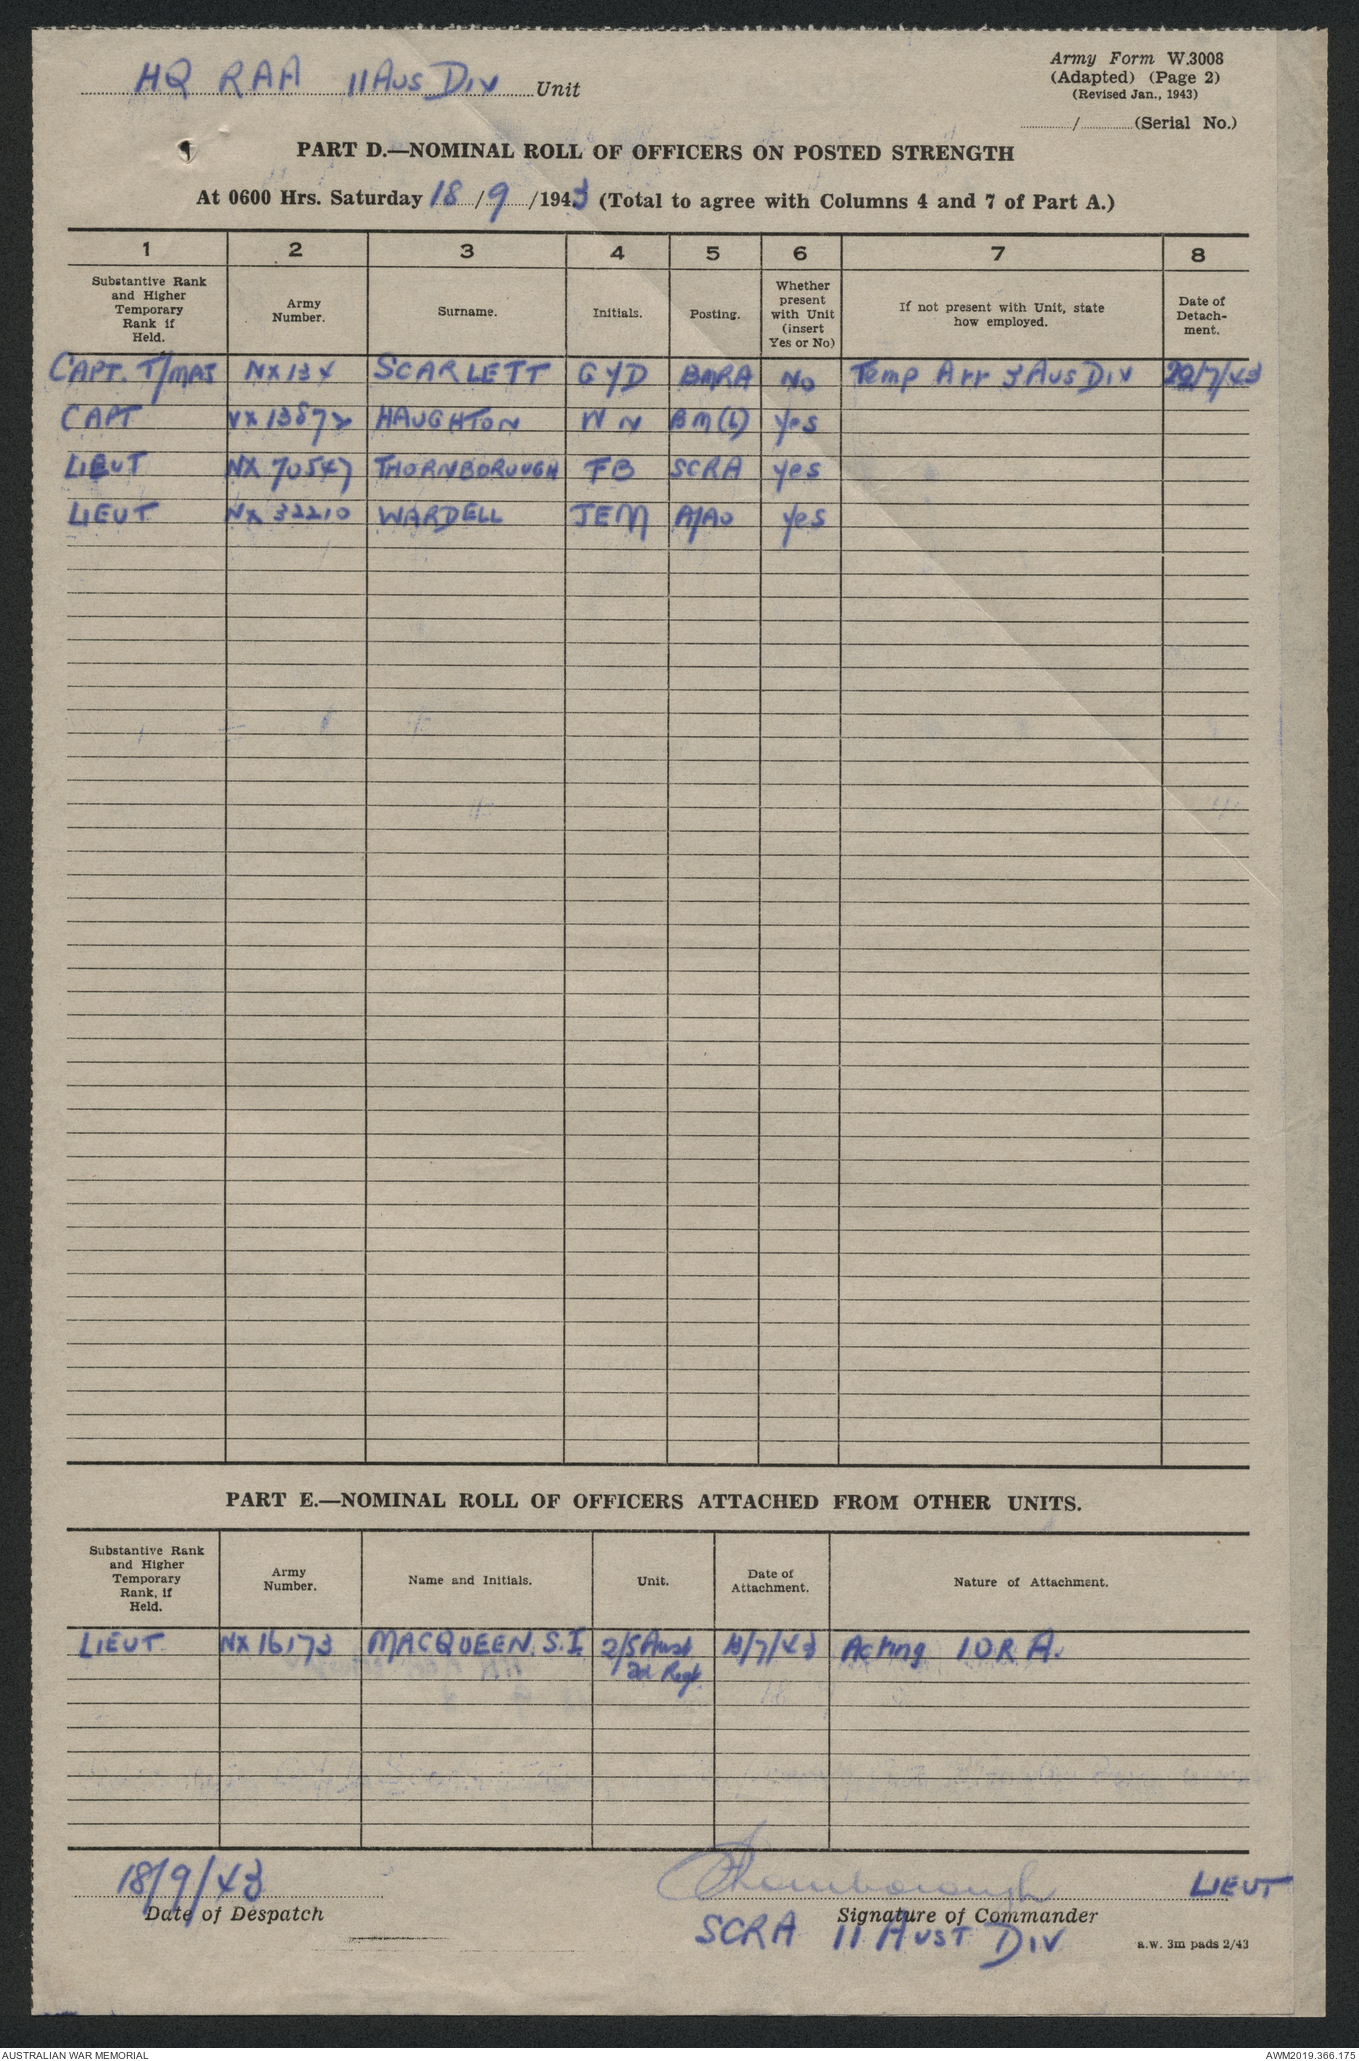 HQ RAA 11 Aus Div Unit
Army Form W.3008
(Adapted) (Page 2)
(Revised Jan., 1943)
/ (Serial No.)
PART D.—NOMINAL ROLL OF OFFICERS ON POSTED STRENGTH
At 0600 Hrs. Saturday 18/9/1943 (Total to agree with Columns 4 and 7 of Part A.)
1 2 3 4 5 6 7 8
Substantive Rank and Higher Temporary Rank if Held. Army Number. Surname. Initials. Posting. Whether present with Unit (insert Yes or No) If not present with Unit, state how employed. Date of Detach-ment.
CAPT. T/MAJ NX134 SCARLETT G Y D BMRA No Temp Aus Div /7/43
CAPT HAUGHTON W N BM(L) Yes
LIEUT NX 70547 THORNBOROUGH FB SCRA yes
LIEUT NX 32210 WARDELL JEM A/AO yes
PART E.—NOMINAL ROLL OF OFFICERS ATTACHED FROM OTHER UNITS.
Substantive Rank and Higher Temporary Rank, if Held. Army Number. Name and Initials. Unit. Date of Attachment. Nature of Attachment.
LIEUT NX16173 MACQUEEN. S.I. 2/5 Aust /7/43 Acting IORA.
Fd Regt
18/9/43
Date of Despatch
Thornborough LIEUT
Signature of Commander
SCRA 11 AUST DIV
a.w. 3m pads 2/43
AUSTRALIAN WAR MEMORIAL
AWM2019.366.175